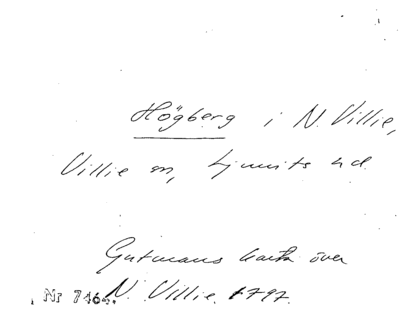 Högberg i N. Villie,
Villie sn, Ljunits hd.
Gutmans karta över
Nr 7464. N. Villie. 1797.